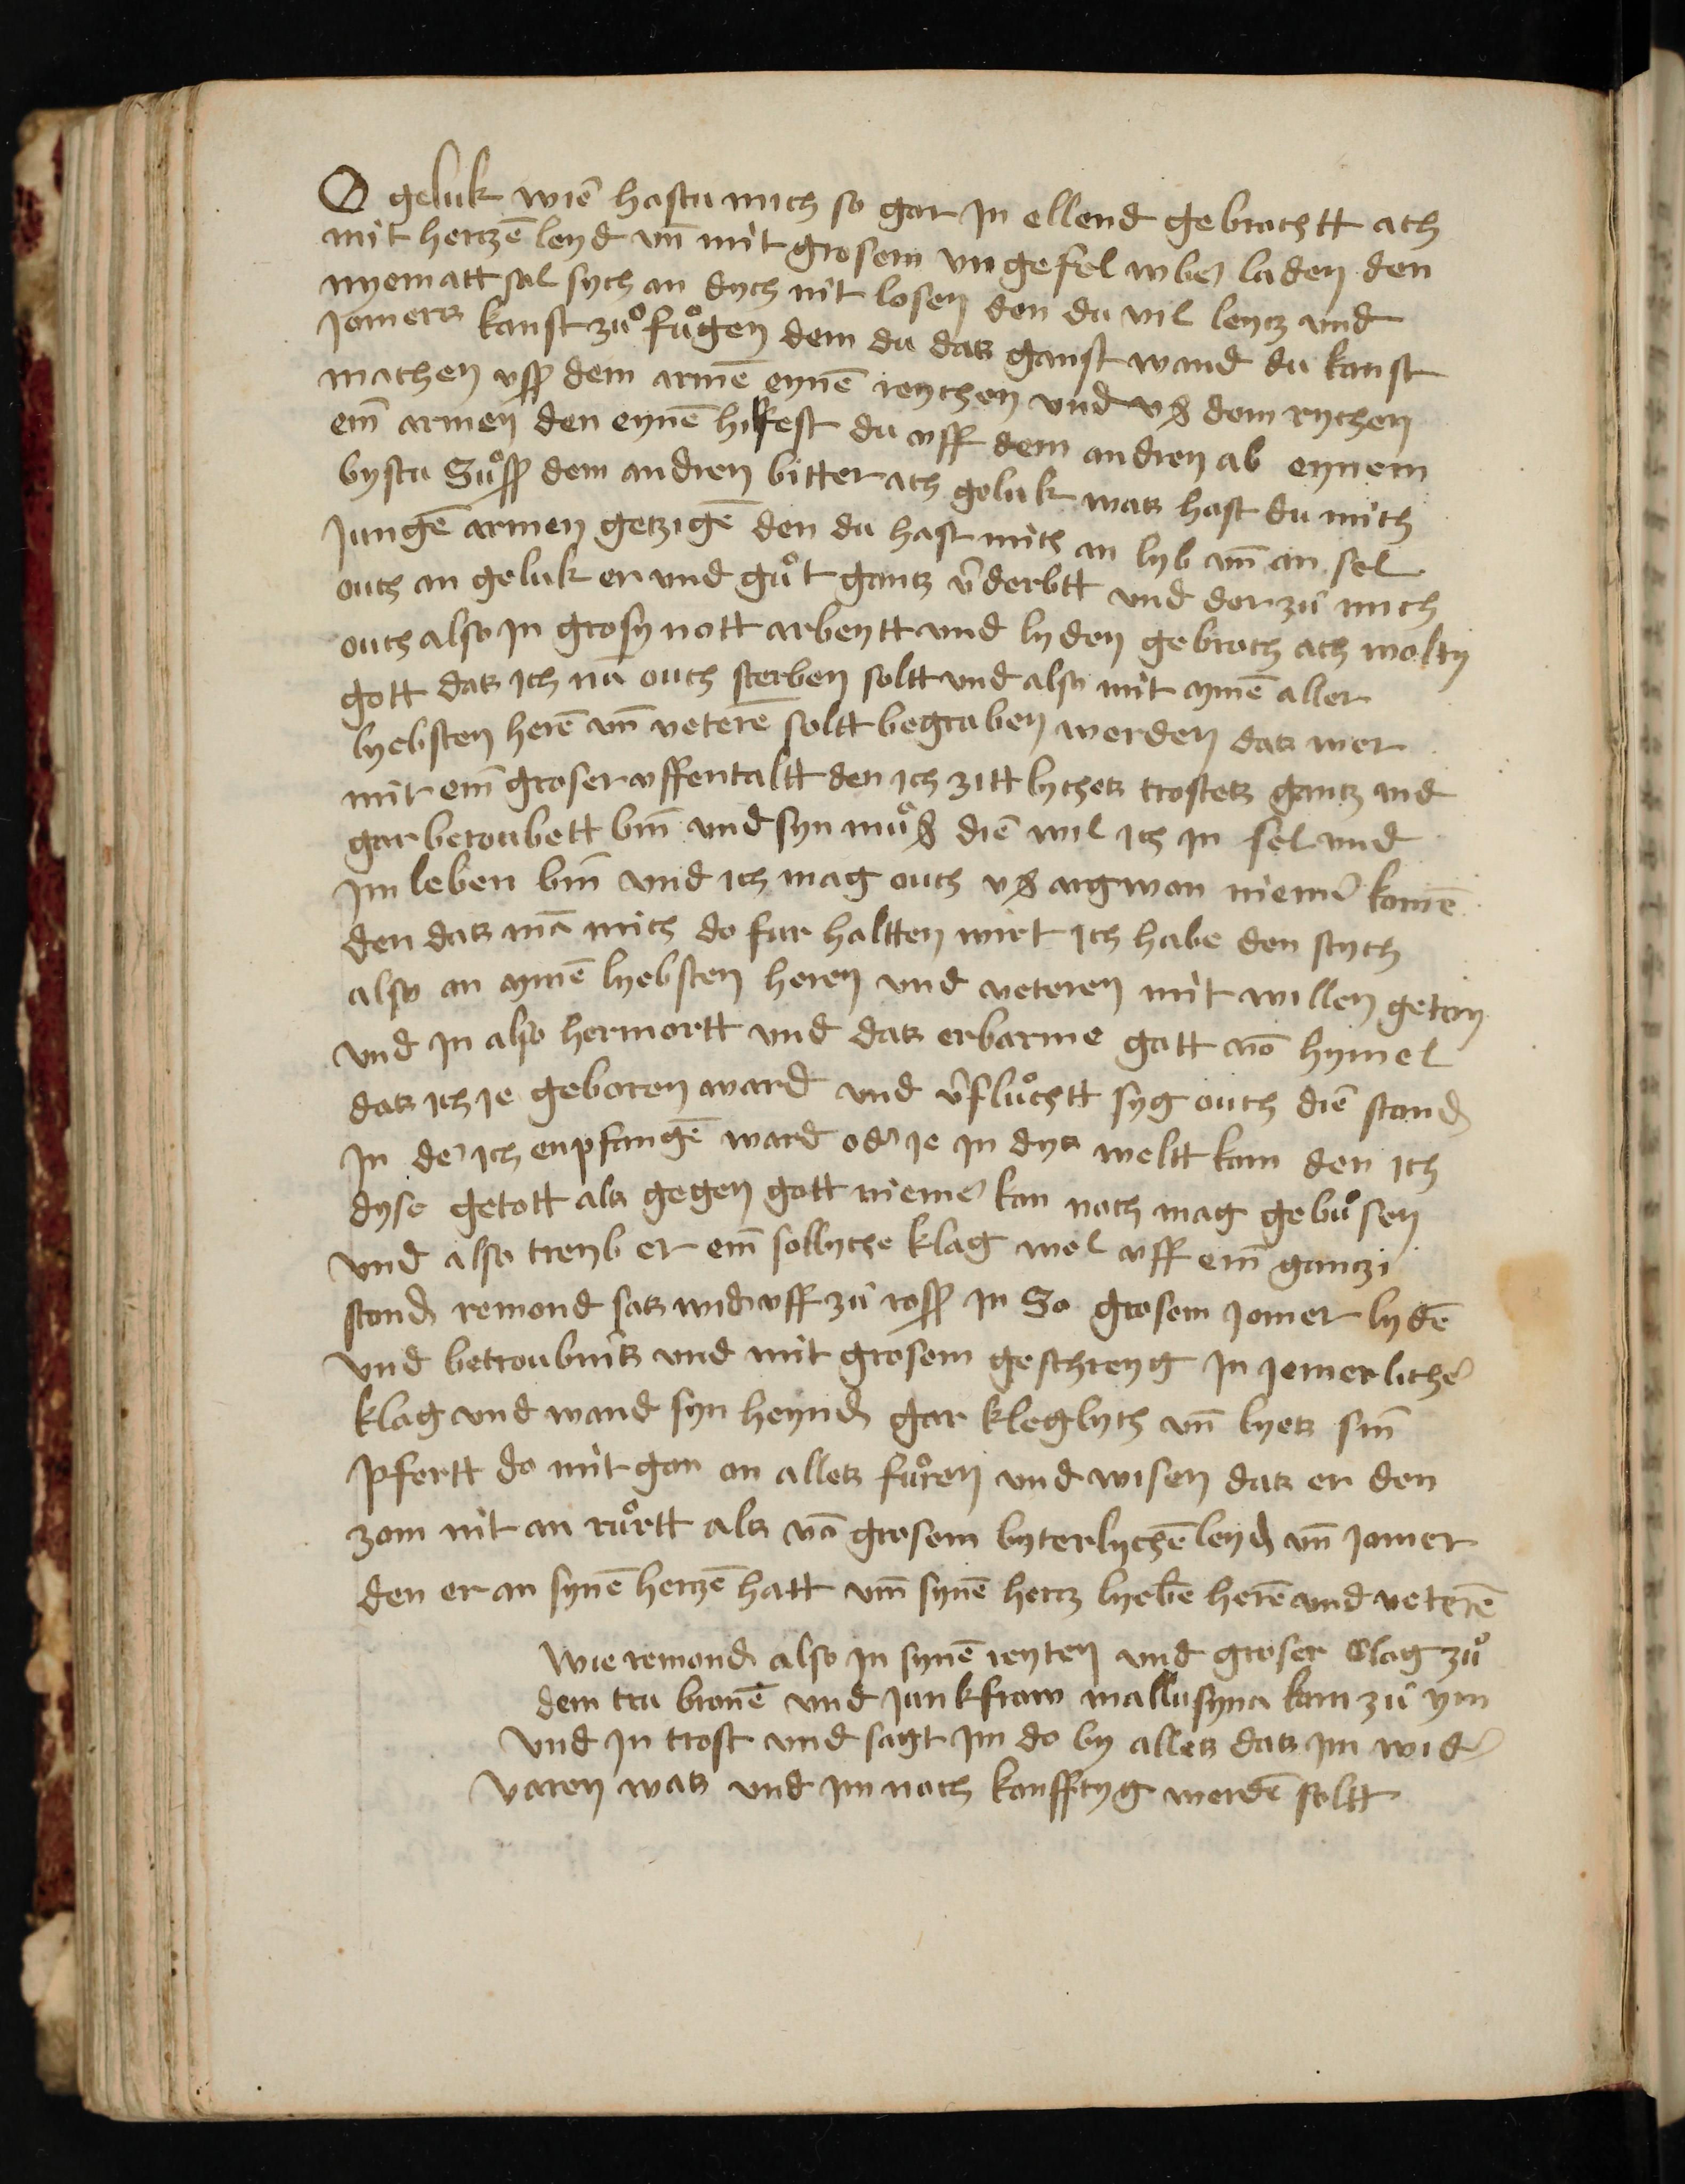 O geluk wie hastu mich so gar jn ellend gebrochtt ach
mit herczē leyd vn̄ mit grosem vngefel wbe͛ laden den
nyematt sol sych an dych nit losen den du vil leycz vnd
jomers kanst zuͦ fuͦgen dem du das ganst wand du kanst
machen vsß dem armē eynē reychen vnd vß dem rychen
ein̄ armen den eynē hilfest du vff dem andren ab eynem
bystu Suͦsß dem andren bitter ach geluk was hast du mich
jungē armen getzigē den du hast mich an lyb vn̄ an sel
ouch an geluk er vnd guͦt gantz v͛derbtt vnd dorzuͦ mich
ouch also jn grosy nott arbeytt vnd lyden gebroch ach wolty
gott das jch nu ouch sterben soltt vnd also mit mynē aller
lyebsten herē vn̄ veterē soltt begraben werden das wer
mir ein̄ groser vffentaltt den jch zittlyches trostes gantz vnd
gar beroubett bin̄ vnd syn muͦß die wil ich jn sel vnd
jm leben bin̄ vnd ich mag ouch vß argwon nieme͛ komē
den das mā mich do fur haltten wirt jch habe den stych
also an mynē lyebsten heren vnd veteren mit willen geton
vnd jn also hermortt vnd das erbarme gott vō hymel
das jch je geboren ward vnd v͛fluͦchtt syg ouch die stond
jn de͛ jch enpfangē ward od͛ je jn dys weltt kam den ich
dyse getott als gegen gott nieme͛ kan noch mag gebuͦsen
vnd also treyb er ein̄ sollyche klag wol vff ein̄ ganczi
stond remond sas wid͛ vff zuͦ rosß jn So grosem jomer lydē
vnd betroubnis vnd mit grosem geschreyg jn jemerliche͛
klag vnd wand syn heynd gar kleglych vn̄ lyes sin̄
pfertt do mit gon on alles fuͦren vnd wisen das er den
zom nit an ruͦrtt als vō grosem byterlychē leyd vn̄ jomer
den er an synē herczē hatt vm̄ synē hercz lyebē herē vnd veterē
Wie remond also jn synē reyten vnd groser Clag zuͦ
dem tru bronē vnd junkfraw mallusyna kam zuͦ ym
vnd jn trost vnd sagt jm do by alles das jm wid͛
varen was vnd jm noch konfftyg werdē soltt